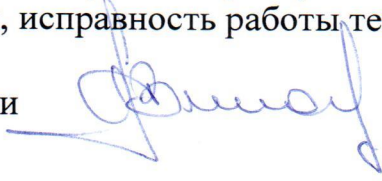 , исправность работы те
и